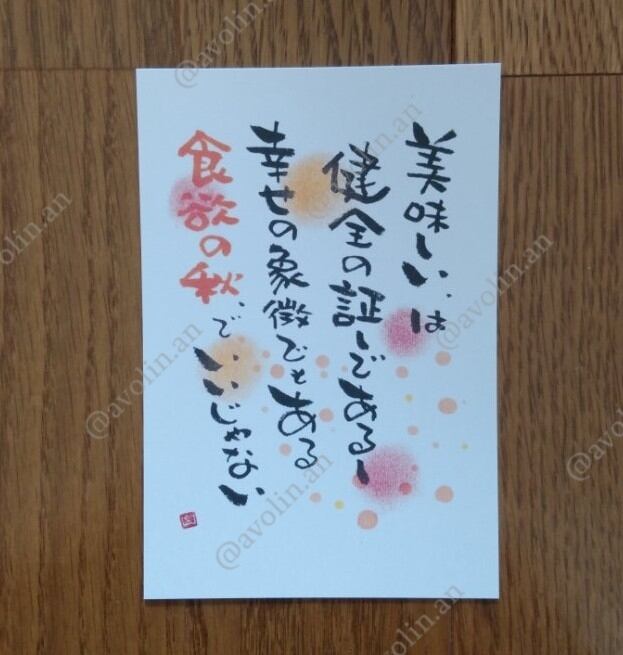 美味しい、は
健全の証しであるし
幸せの象徴でもある
食欲の秋、で いいじゃない
@avolin.an
@avolin.an
@avolin.an
@avolin.an
@avolin.an
@avolin.an
@avolin.an